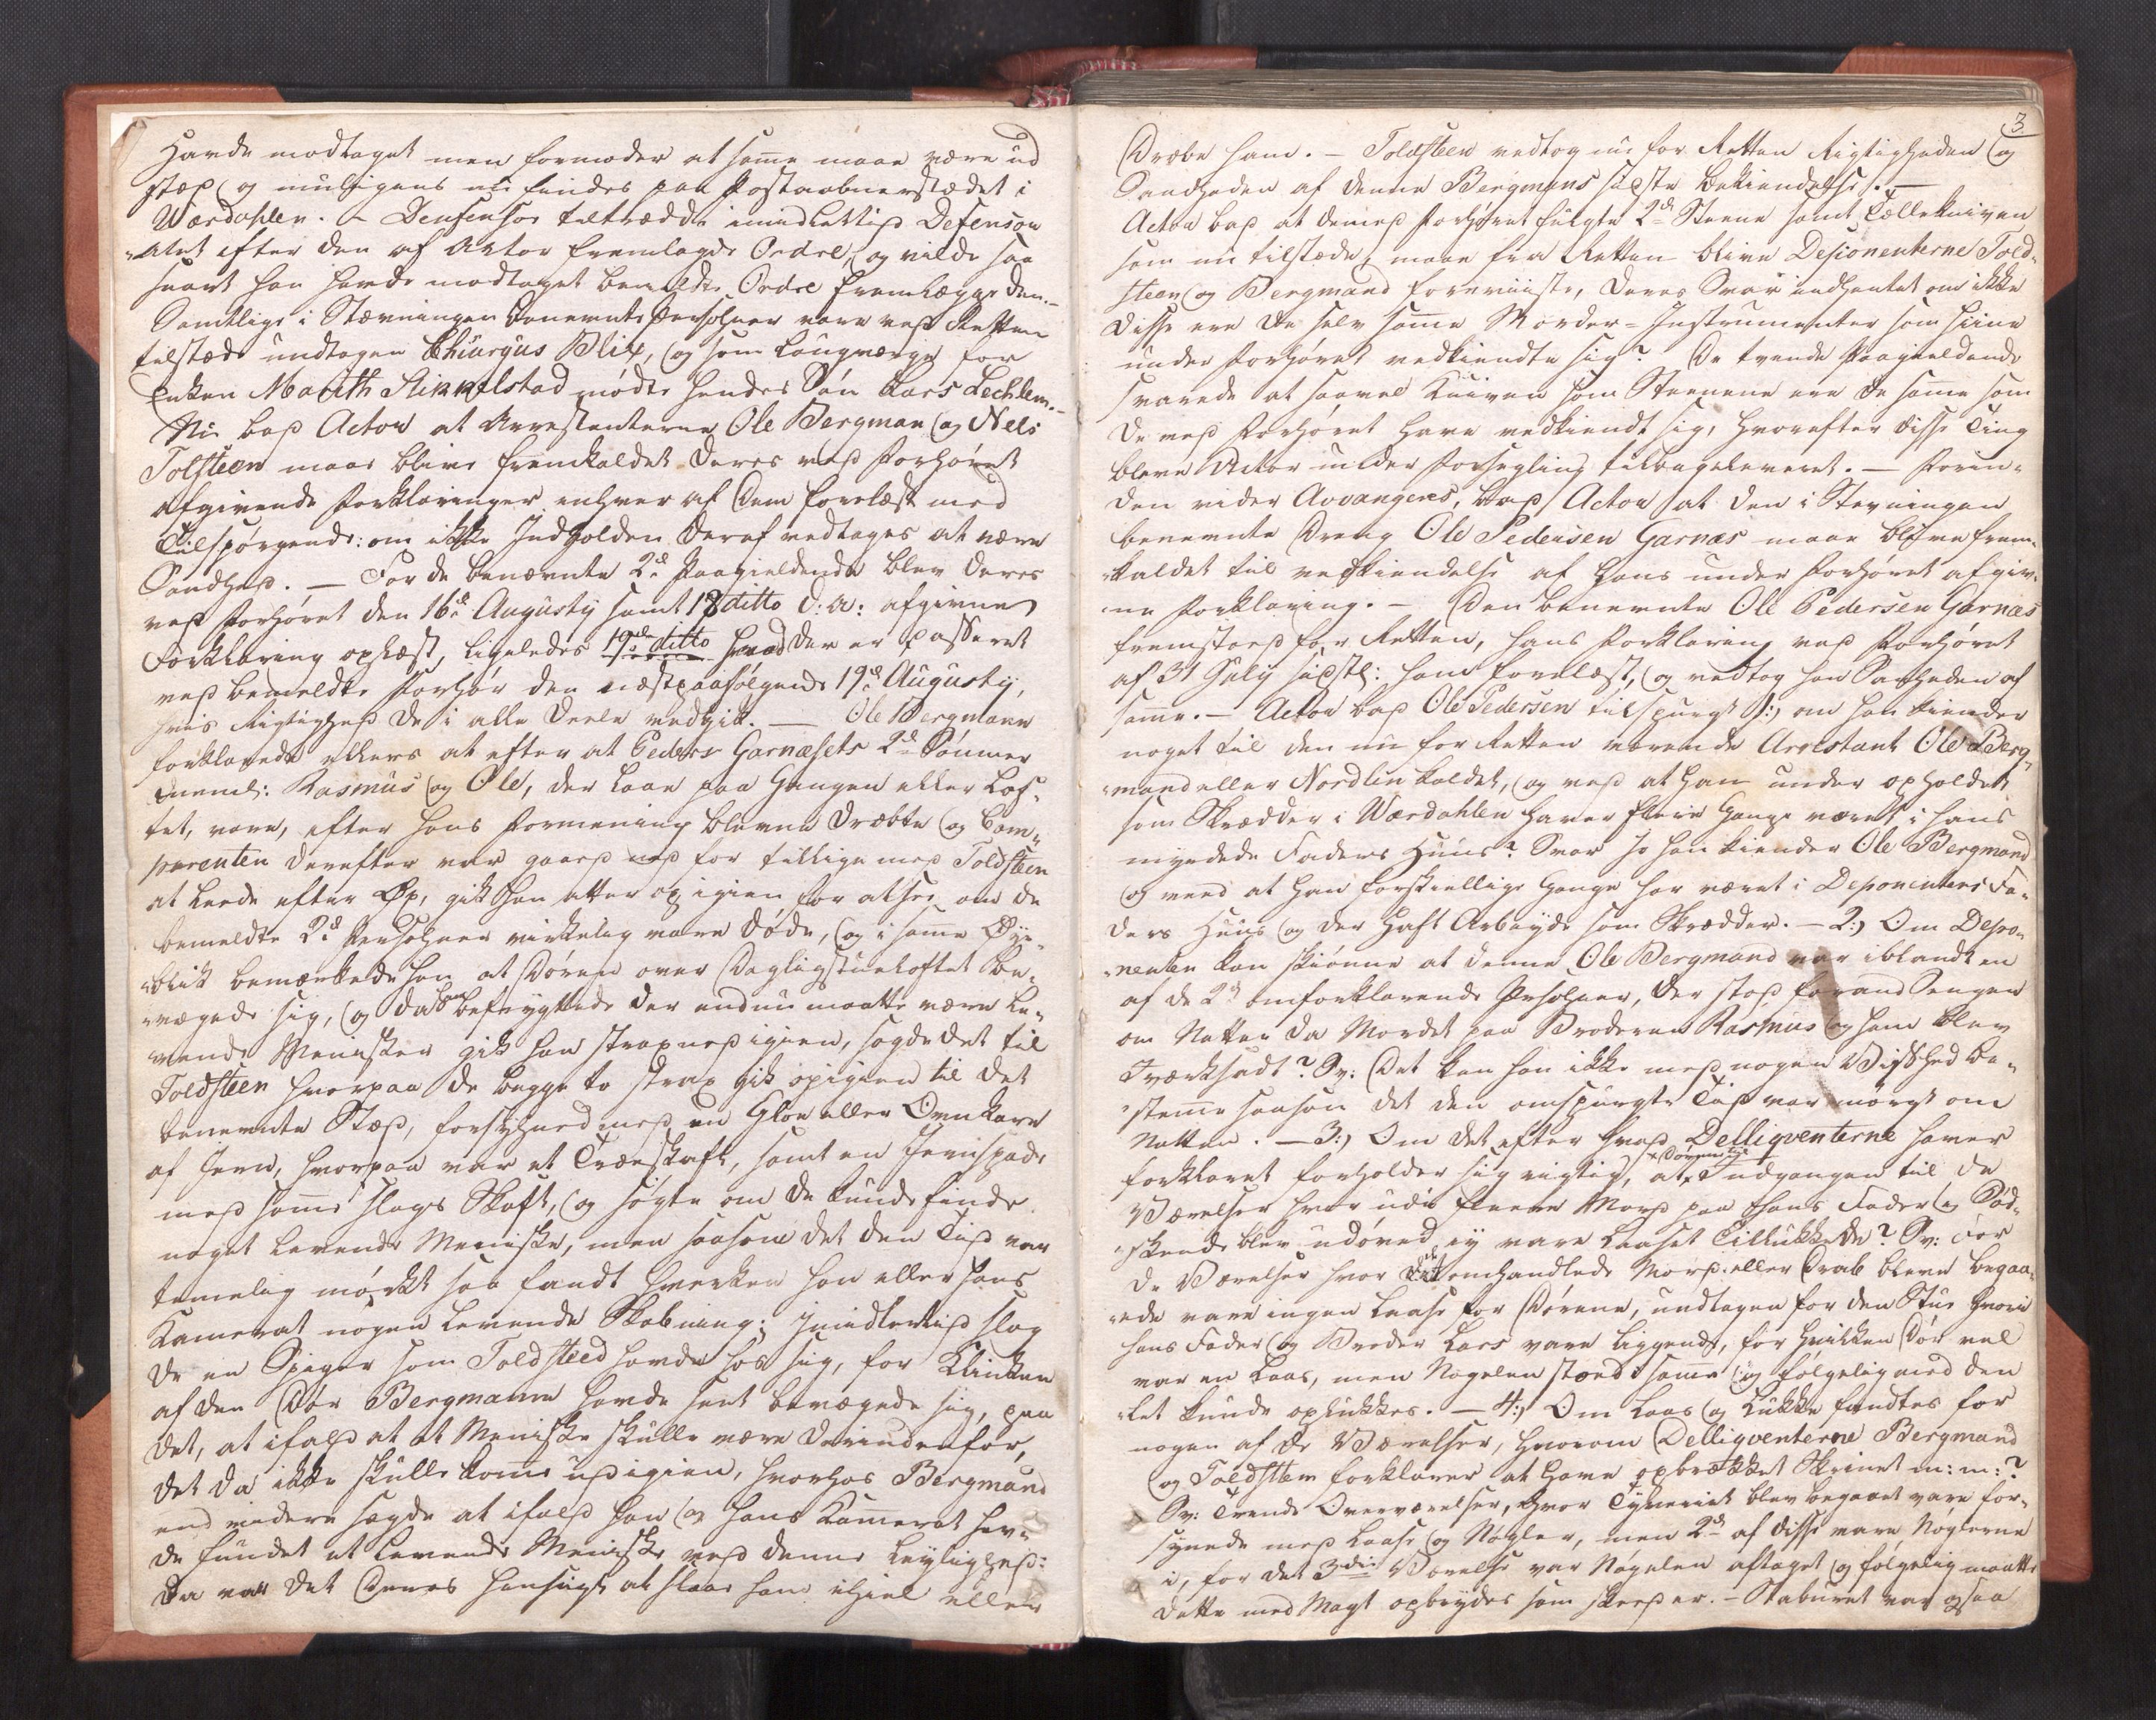 Havde modtaget men formoder at samme maae være ud
stæd og muligens nu findes paa Postaabnerstædet i
Værdahlen. – Densensor tiltrædde imidlertid Defension
„atet efter den af Actor fremlagde Ordre, og vilde saa
snart han havde modtaget bemeldte Ordre fremlægge den. –
Samtlige i Stævningen benævnte Persohner vare ved Retten
tilstæde undtagen Chiurgus Blix, og som Laugværge for
Enken Marith Stikkelstad mødte hendes Søn Lars Lechlem. –
Nu bad Actor at Arrestanterne Ole Bergman og Nels
Tolsteen maae blive fremkaldet deres ved Forhøret
afgivende Forklaringer enhver af Dem forelæst med
Tilspørgende: om ikke Indholden deraf vedtages at være
Sandhed. – For de benævnte 2de Paagieldende blev deres
ved Forhøret den 16de Augusty samt 18 ditto d: a: afgivne
Forklaring oplæst, ligeledes 19de ditto hvad der er passeret
ved bemeldte Forhør den næstpaafølgende 19de Augusty,
hvis Rigtighed de i alle Deele vedgik. – Ole Bergmann
forklarede ellers at efter at Peders Garnæsets 2de Sønner
nemL: Rasmus og Ole, der laae paa Gangen eller Lof„
tet, vare, efter hans Formening blevne dræbte og Com„
parenten derefter var gaaed ned for tillige med Toldsteen
at leede efter Øx, gik han atter op igien for at see om de
bemeldte 2de Persohner virkelig vare døde, og i samme Øye„
„blik bemærkede han at Døren over Dagligstueloftet be„
„vægede sig, og da han befrygtede der endnu maatte være le„
vende Mennisker gik han strax ned igien, sagde det til
Toldsteen hvorpaa de begge to strax gik op igien til det
benævnte Stæd, forsyned med en Gloe eller Ovnkare
af Jern, hvorpaa var et Træeskaft, samt en Jernspade
med samme slags Skaft, og søgte om de kunde finde
noget levende Menniske, men saasom det den Tid var
temmelig mørkt saa fandt hverken han eller hans
Kamerat nogen levende Skabning; imidlertid slog
de en Spiger som Toldsteed havde hos sig, for Klinken
af den Dør Bergmann havde seet bevægede sig, paa
det, at ifald at et Menniske skulle være derindenfor,
det da ikke skulle komme ud igien, hvorhos Bergmand
end videre sagde at ifald han og hans Kammerat hav„
de fundet et levende Menniske ved denne Leylighed:
da var det deres Hensigt at slaae ham ihiel eller
3
Dræbe ham. – Toldsteen vedtog nu for Retten Rigtigheden og
Sandheden af denne Bergmans sidste Bekiendelse. –
Actor bad at de med Forhøret fulgte 2de Steene samt Tællekniven
som nu tilstæde, maae fra Retten blive Deponenterne Told„
steen og Bergmand foreviiste, deres Svar indhentet om ikke
disse ere de selv samme Morder-Instrumenter som siine
under Forhøret vedkiendte sig? De tvende Paagieldende
svarede at saavel Kniven som Steenene ere de samme som
de ved Forhøret have vedkiendt sig, hvorefter disse Ting
bleve Actor under Forsegling tilbageleveret. – Foren„
den vider Avvangeres, bad Actor at den i Stevningen
benevnte Dreng Ole Pedersen Garnæs maae blive frem„
„kaldet til vedkiendelse af hans under Forhøret afgiv„
„ne Forklaring. – Den benevnte Ole Pedersen Garnæs
fremstoed for Retten, hans Forklaring ved Forhøret
af 31 July sidstl: ham forelæst, og vedtog han Sandheden af
samme. – Actor bad Ole Pedersen tilspurgt 1:, om han kiender
noget til den nu for Retten værende Arrestant Ole Berg„
„mand eller Nordlin kaldet, og ved at han under opholdet
som Skrædder i Værdahlen haver fleere Gange været i hans
myrdede Faders Huus? Svar Jo han kiender Ole Bergmand
og veed at han forskiellige Gange har været i Deponentens Fa„
ders Huus og der haft Arbeyde som Skrædder. – 2:, Om Depo„
„nenten kan skiønne at denne Ole Bergmand var iblandt en
af de 2de omforklarende Persohner, der stod foran Sengen
om Natten da Mordet paa Broderen Rasmus og ham blev
Iværksadt? Sv: Det kan han ikke med nogen Vished be„
„stemme saasom det den omspurgte Tid var mørgt om
Natten. – 3:, Om det efter hvad Delliqventerne haver
forklaret forholder sig rigtig, at Indgangen til de
Værelser hvor udi fleere Mord paa hans Fader og Sød„
„skende blev udøved ey vare Laaset Tillukkede? Sv: For
de Værelser hvor omhandlede Mord eller Drab bleve begaa„
„ede vare ingen Laase for Dørene, undtagen for den Stue hvori
hans Fader og Broder Lars vare liggende, for hvilken Dør vel
var en Laas, men Nøgelen stoed i samme og følgelig med den
let kunde oplukkes. – 4:, Om Laas og Lukke fandtes for
nogen af de Værelser, hvorom Delliqventerne Bergmand
og Toldsteen forklarer at have opbrækket Skrinet m: m:?
Sv: Trende Overværelser, hvor Tyveriet blev begaaet vare for„
synede med Laase og Nøgler, men 2de af disse vare Nøglerne
i, for det 3die Værelse var Nøgelen aftaget og følgelig maatte
dette med Magt opbrydes som skeed er. – Staburet var ogsaa